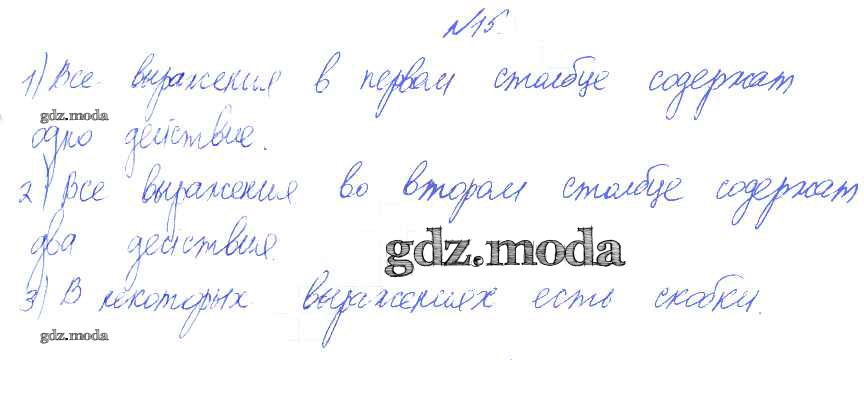 №15.
1) Все выражения в первом столбце содержат
gdz.moda
одно действие.
2) Все выражения во втором столбце содержат
два действия.
gdz.moda
3) В некоторых выражениях есть скобки.
gdz.moda